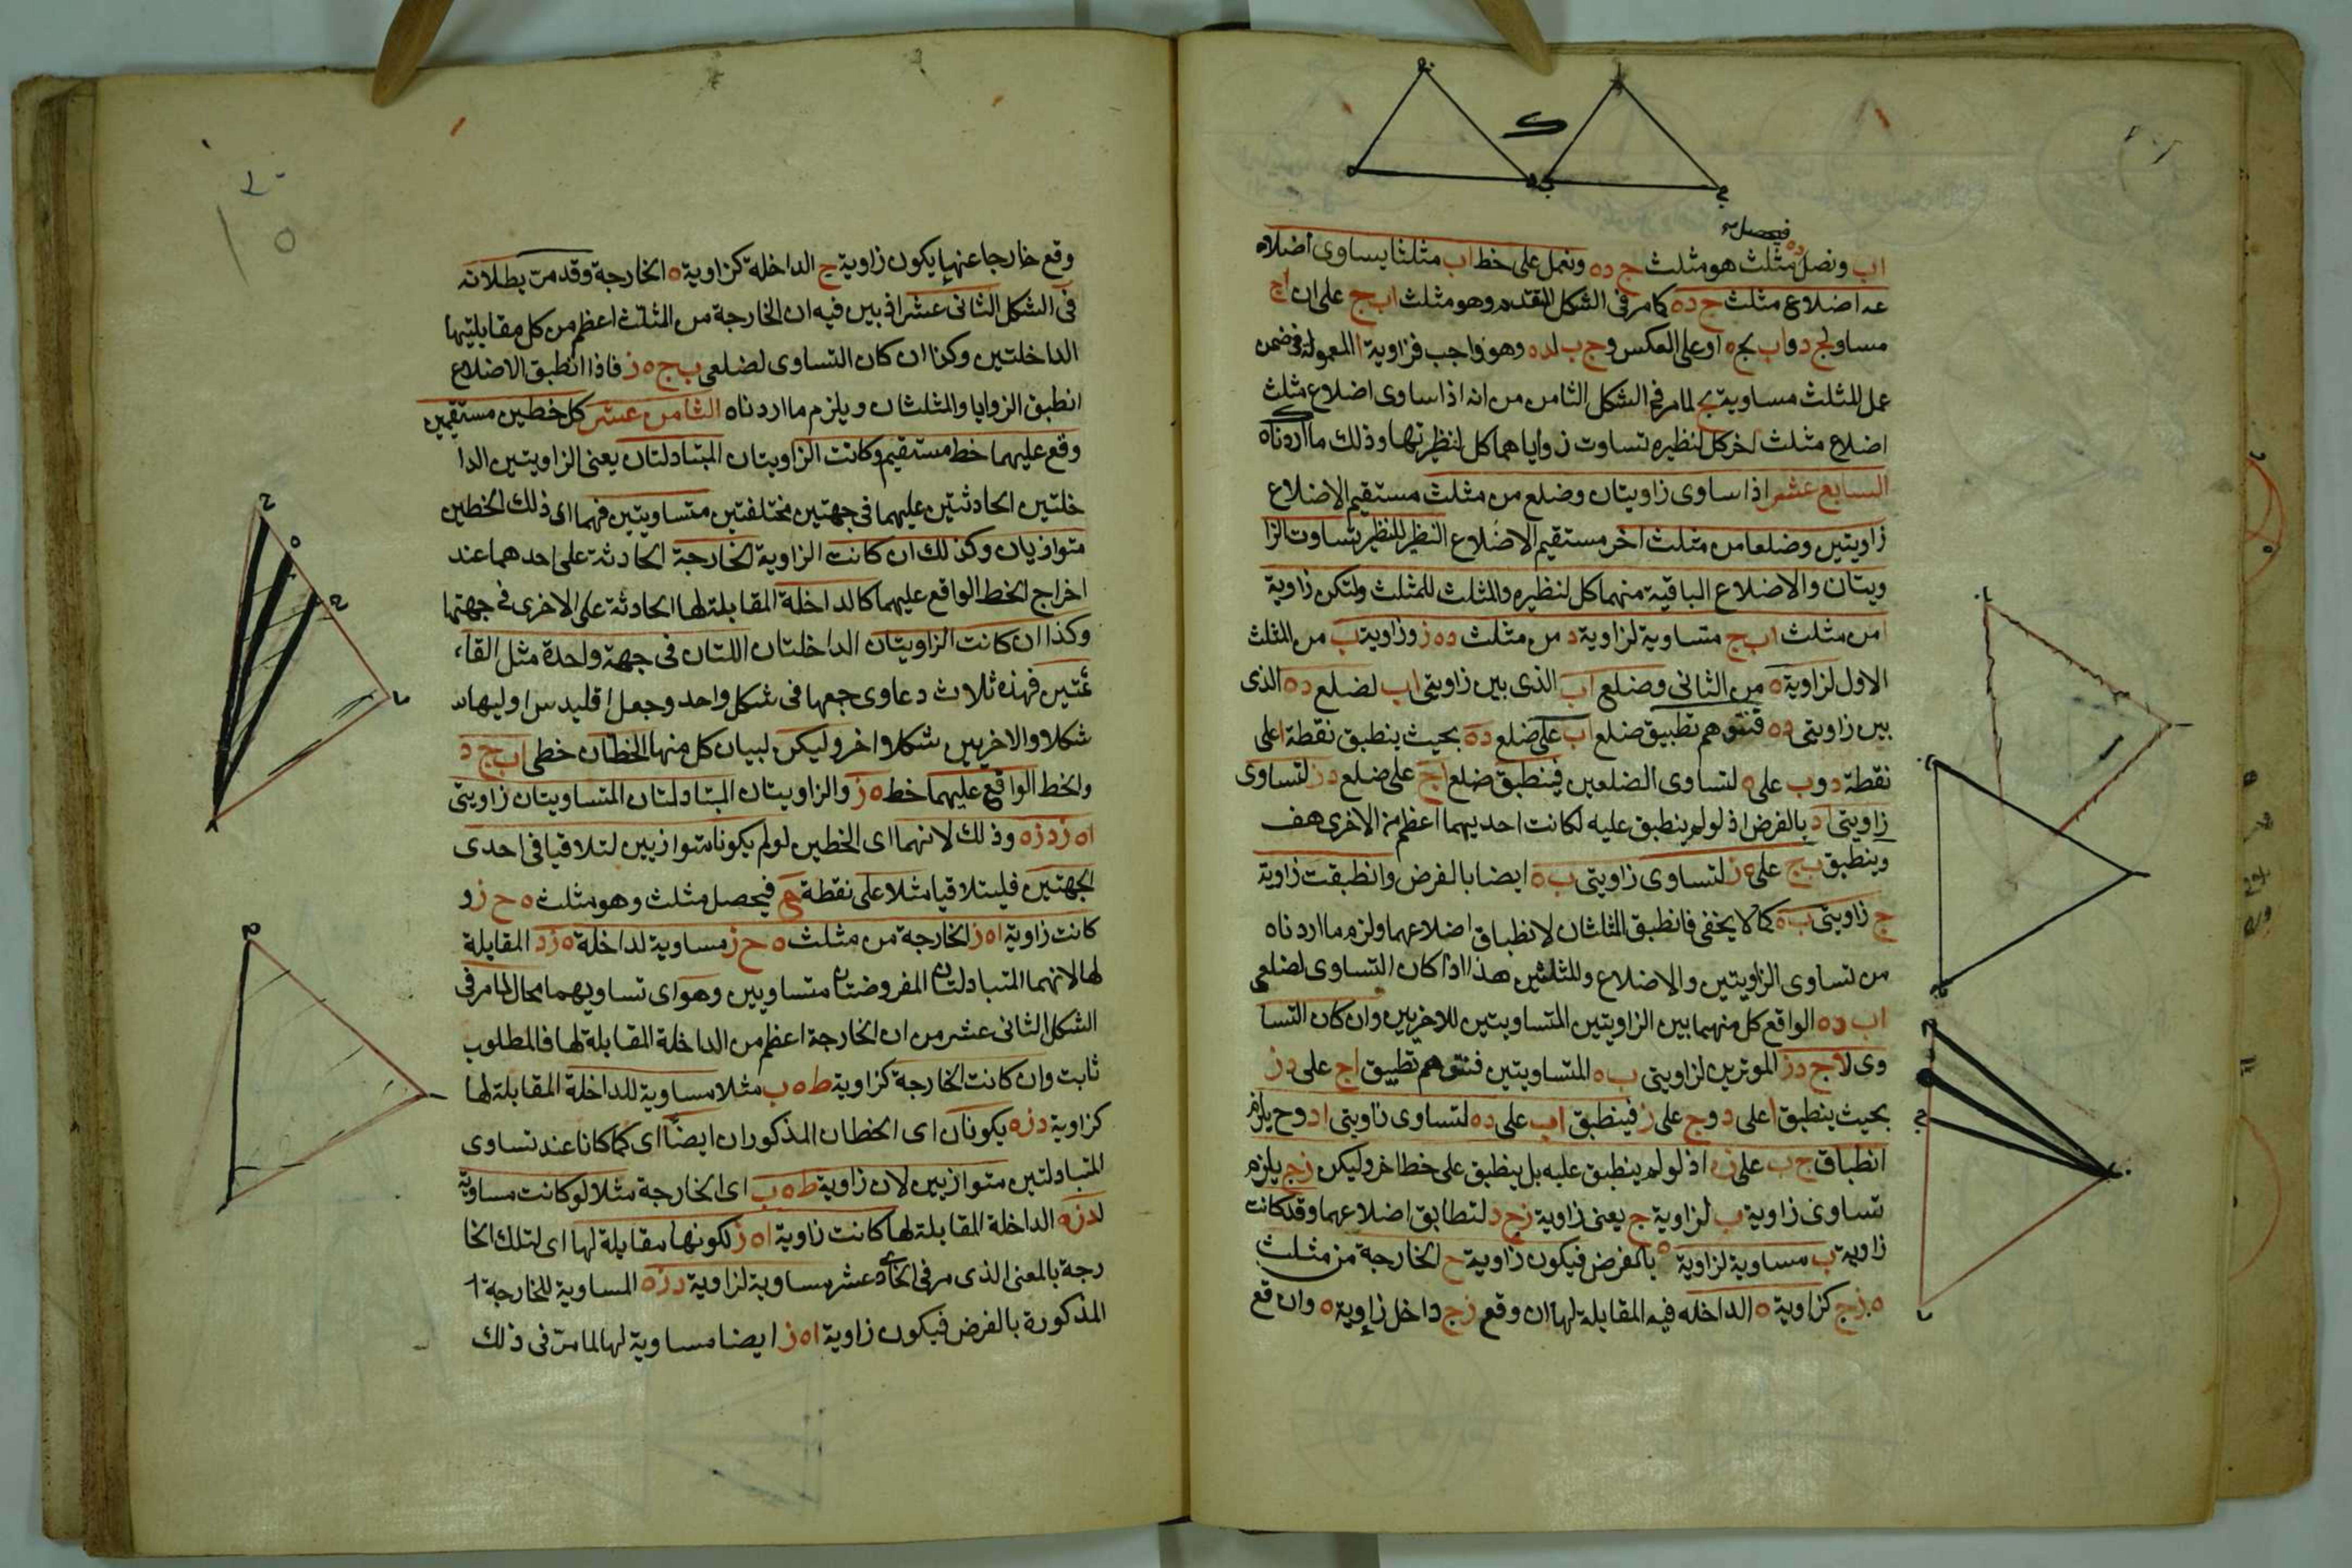 فيحصل
اب ونصل ده مثلث هو مثلث ج ده ونعمل على خط اب مثلثا يساوى اضلاعه
عه اضلاع مثلث ج ده كما مر فى الشكل المتقدم وهو مثلث اب ج على ان اج
مساو لج د واب لج ه او على العكس وج ب لده وهو واجب فزاوية ا المعمولة فى ضمن
عمل المثلث مساوية لج لما مر فى الشكل الثامن من انه اذا ساوى اضلاع مثلث
اضلاع مثلث اخر كل لنظيره تساوت زواياهما كل لنظيرتها وذلك ما اردناه
السابع عشر اذا ساوى زاويتان وضلع من مثلث مستقيم الاضلاع
زاويتين وضلعا من مثلث اخر مستقيم الاضلاع النظير للنظير تساوت الزا
ويتان والاضلاع الباقية منهما كل لنظيره والمثلث للمثلث ولتكن زاوية
ا من مثلث اب ج متساوية لزاوية د من مثلث ده ز وزاوية ب من المثلث
الاول لزاوية ه من الثانى وضلع اب الذى بين زاويتى اب لضلع ده الذى
بين زاويتى ده فنتوهم تطبيق ضلع اب على ضلع ده بحيث ينطبق نقطة ا على
نقطة د وب على ه لتساوى الضلعين فينطبق ضلع اج على ضلع دز لتساوى
زاويتى اد بالفرض اذ لو لم ينطبق عليه لكانت احديهما اعظم من الاخرى هف
وينطبق ب ج على ه ز لتساوى زاويتى ب ه ايضا بالفرض وانطبقت زاوية
ج زاويتى ب ه كما لا يخفى فانطبق المثلثان لانطباق اضلاعهما ولزم ما اردناه
من تساوى الزاويتين والاضلاع وللمثلثين هذا اذا كان التساوى لضلعى
اب ده الواقع كل منهما بين الزاويتين المتساويتين للاخريين وان كان التسا
وى لاج دز الموترين لزاويتى ب ه المتساويتين فنتوهم تطبيق اج على دز
بحيث ينطبق ا على د وج على ز فينطبق اب على ده لتساوى زاويتى اد وح يلزم
انطباق ج ب على زه اذ لو لم ينطبق عليه بل ينطبق على خط اخر وليكن زح يلزم
تساوى زاوية ب لزاوية ج يعنى زاوية زح د لتطابق اضلاعهما وقد كانت
زاوية ب مساوية لزاوية ه بالفرض فيكون زاوية ح الخارجة من مثلث
ه زح كزاوية ه الداخله فيه المقابلة لها ان وقع زح داخل زاوية ه وان وقع
وقع خارجا عنها يكون زاوية ح الداخلة كزاوية ه الخارجة وقد مرت بطلانه
فى الشكل الثانى عشر اذ بين فيه ان الخارجة من المثلث اعظم من كل مقابلتيها
الداخلتين وكذا ان كان التساوى لضلعى ب ج ه ز فاذا انطبق الاضلاع
انطبق الزوايا والمثلثان ويلزم ما اردناه الثامن عشر كل خطين مستقيمين
وقع عليهما خط مستقيم وكانت الزاويتان المتبادلتان يعنى الزاويتين الدا
خلتين الحادثتين عليهما فى جهتين مختلفتين متساويتين فهما اى ذلك الخطين
متوازيان وكذلك ان كانت الزاوية الخارجة الحادثة على احدهما عند
اخراج الخط الواقع عليهما كالداخلة المقابلة لها الحادثة على الاخرى فى جهتها
وكذا ان كانت الزاويتان الداخلتان اللتان فى جهة واحدة مثل القا
ئمتين فهذه ثلاث دعاوى جمعها فى شكل واحد وجعل اقليدس اوليها
شكلا والاخريين شكلا واخر وليكن لبيان كل منها الخطان خطى اب ج د
والخط الواقع عليهما خط ه ز والزاويتان المتبادلتان المتساويتان زاويتى
اه ز دزه وذلك لانهما اى الخطين لو لم يكونا متوازيين لتلاقيا فى احدى
الجهتين فليتلاقيا مثلا على نقطة ح فيحصل مثلث وهو مثلث ه ح ز و
كانت زاوية اه ز الخارجة من مثلث ه ح ز مساوية لداخلة ه زد المقابلة
لها لانهما المتبادلتان المفروضتان متساويين وهو اى تساويهما محال لما مر فى
الشكل الثانى عشر من ان الخارجة اعظم من الداخلة المقابلة لها فالمطلوب
ثابت وان كانت الخارجة كزاوية ط ه ب مثلا مساوية للداخلة المقابلة لها
كزاوية دزه يكونان اى الخطان المذكوران ايضا اى كما كانا عند تساوى
المتبادلتين متوازيين لان زاوية ط ه ب اى الخارجة مثلا لو كانت مساوية
لدزه الداخلة المقابلة لها كانت زاوية اه ز لكونها مقابلة لها اى لتلك الخا
رجة بالمعنى الذى مر فى الحادى عشر مساوية لزاوية دزه المساوية للخارجة
المذكورة بالفرض فيكون زاوية اه ز ايضا مساوية لها لما مر فى ذلك